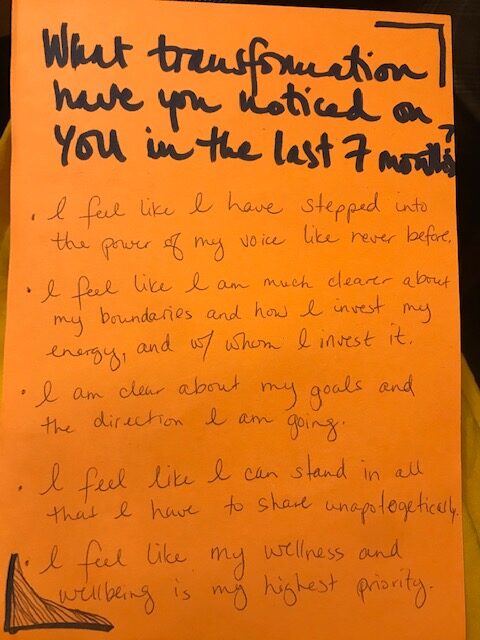 What transformation
have you noticed on
YOU in the last 7 months?
• I feel like I have stepped into
the power of my voice like never before.
• I feel like I am much clearer about
my boundaries and how I invest my
energy, and w/ whom I invest it.
• I am clear about my goals and
the direction I am going.
• I feel like I can stand in all
that I have to share unapologetically.
• I feel like my wellness and
wellbeing is my highest priority.